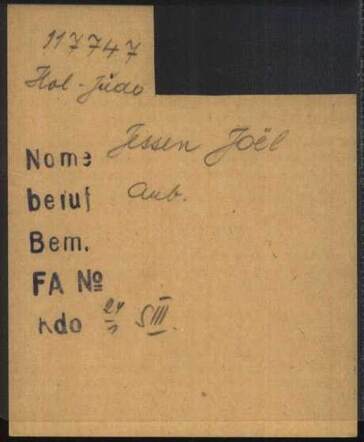 117747
Hol-Jude
Name Jessen Joël
beruf Arb.
Bem.
FA №
Kdo 24/1 SIII.